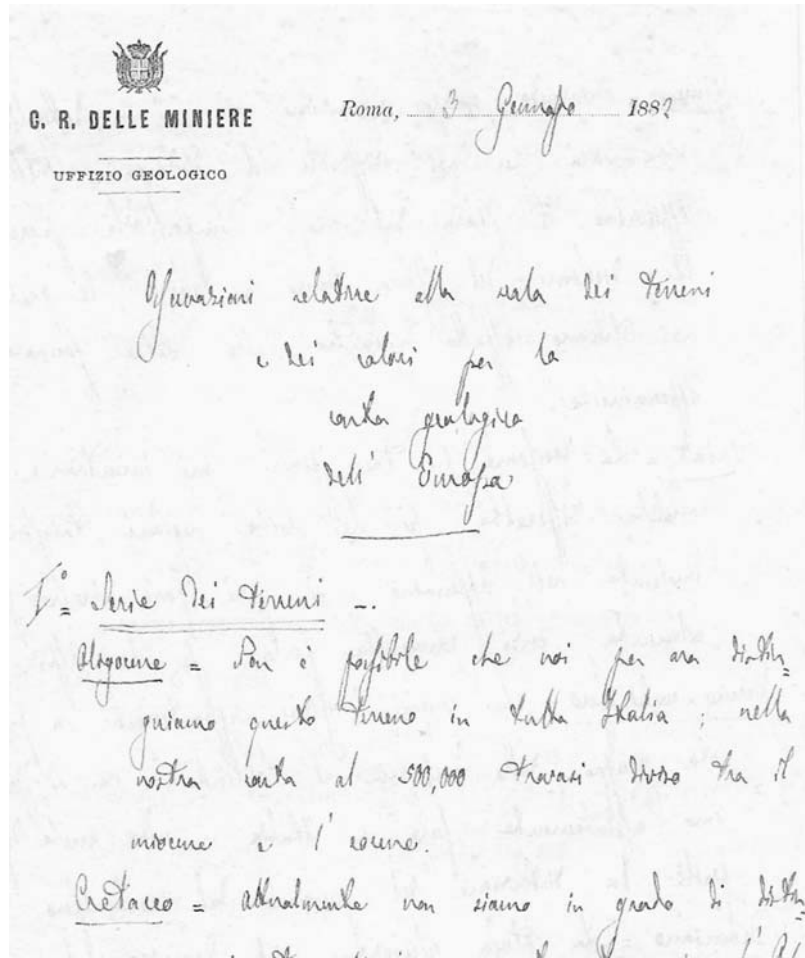 C. R. DELLE MINIERE
Roma, 3 Gennajo 1882
UFFIZIO GEOLOGICO
Osservazioni relative alla scala dei terreni
e dei colori per la
carta geologica
dell' Europa
I° = Serie dei terreni —.
Oligocene = Non è possibile che noi per ora distin=
guiamo questo terreno in tutta Italia; nella
nostra carta al 500,000 trovasi diviso tra il
miocene e l' eocene.
Cretaceo = attualmente non siamo in grado di distin=